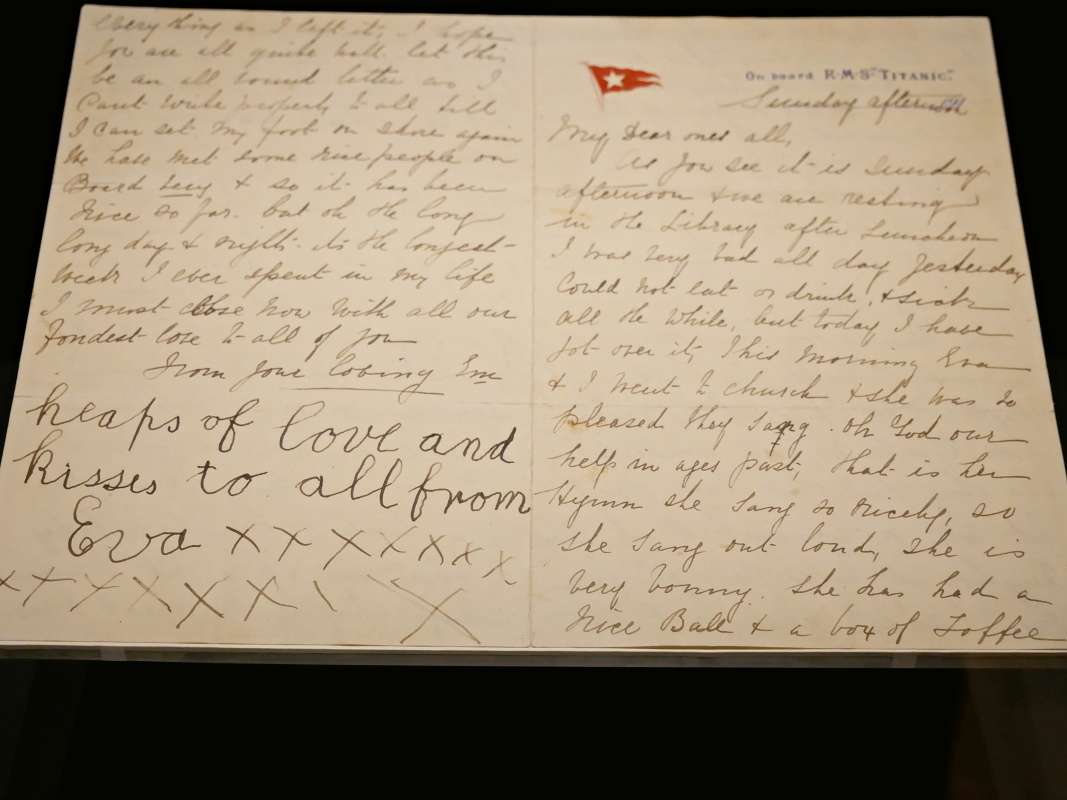 everything as I left it, I hope
you are all quite well. let this
be an all round letter as I
Cant write properly to all till
I can set my foot on shore again
We have met some nice people on
Board Lucy & so it has been
nice so far. but oh the long
long day & nights its the longest
Week I ever spent in my life
I must close now with all our
fondest love to all of you
From your loving Em
heaps of love and
kisses to all from
Eva x x x x x x x
x x x x x x x
On board R.M.S. "TITANIC."
Sunday afternoon
My Dear ones all,
As you see it is Sunday
afternoon & we are resting
in the Library after Luncheon
I was very bad all day Yesterday
Could not eat or drink, & sick
all the While, but today I have
got over it, This morning Eva
& I went to church & she was so
pleased they sang. Oh God our
help in ages past, that is her
Hymn she sang so nicely, so
she sang out loud, she is
very bonny. she has had a
nice Ball & a box of Toffee